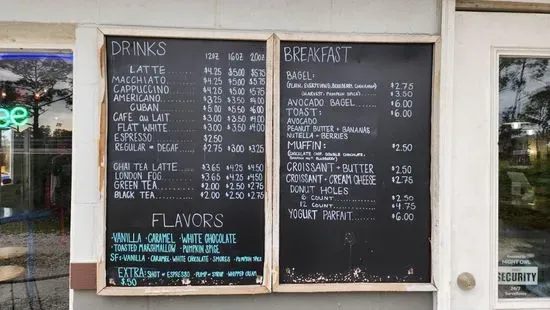 DRINKS 12oz 16oz 20oz
LATTE $4.25 $5.00 $5.75
MACCHIATO $4.25 $5.00 $5.75
CAPPUCCINO $4.25 $5.00 $5.75
AMERICANO
CUBAN
CAFE au LAIT
FLAT WHITE $3.00 $3.50 $4.00
ESPRESSO $2.50
REGULAR = DECAF $2.75 $3.00 $3.25
CHAI TEA LATTE $3.65 $4.25 $4.50
LONDON FOG $3.65 $4.25 $4.50
GREEN TEA $2.00 $2.50 $2.75
BLACK TEA $2.00 $2.50 $2.75
FLAVORS
·VANILLA ·CARAMEL ·WHITE CHOCOLATE
·TOASTED MARSHMALLOW ·PUMPKIN SPICE
SF: ·VANILLA ·CARAMEL ·WHITE CHOCOLATE ·SMORES ·PUMPKIN SPICE
EXTRA: SHOT OF ESPRESSO ·PUMP OF SYRUP ·WHIPPED CREAM
$.50
BREAKFAST
BAGEL:
$2.75
$3.50
AVOCADO BAGEL $6.00
TOAST: $6.00
AVOCADO
PEANUT BUTTER + BANANAS
NUTELLA + BERRIES
MUFFIN: $2.50
CROISSANT + BUTTER $2.50
CROISSANT + CREAM CHEESE $2.75
DONUT HOLES
6 COUNT $2.50
12 COUNT $4.75
YOGURT PARFAIT $6.00
NIGHT OWL
SECURITY
24/7
Surveillance